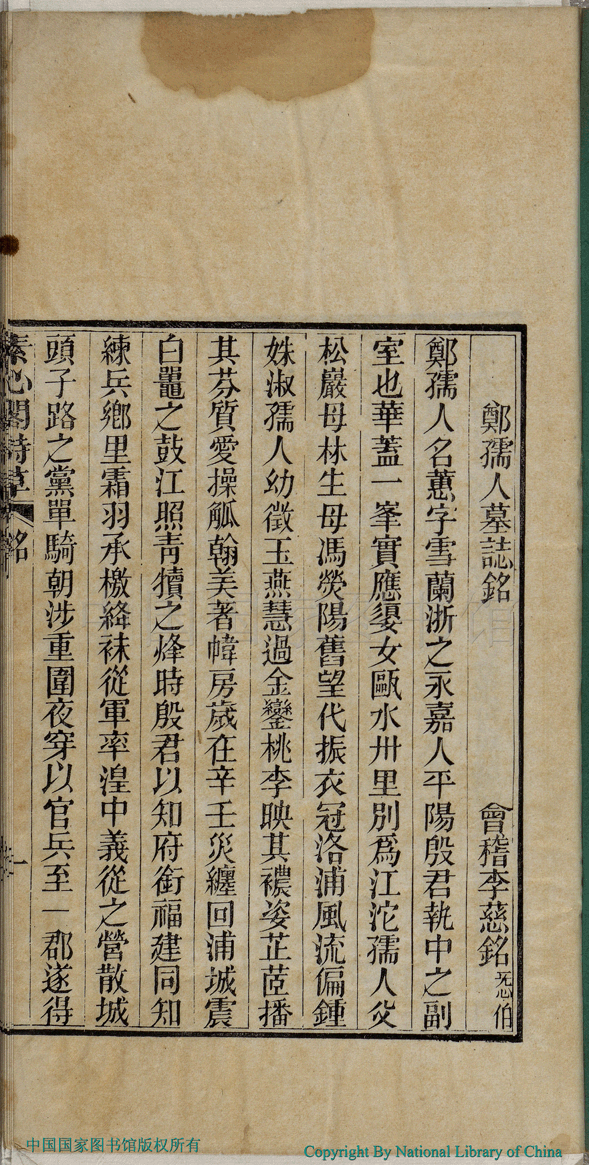 鄭孺人墓誌銘　會稽李慈銘㤅伯
鄭孺人名蕙字雪蘭浙之永嘉人平陽殷君執中之副
室也華蓋一峯實應婺女甌水卅里別為江沱孺人父
松巖母林生母馮熒陽舊望代振衣冠洛浦風流偏鍾
姝淑孺人幼徵玉燕慧過金鑾桃李映其襛姿芷茝播
其芬質愛操觚翰美著幃房歲在辛壬災纏回浦城震
白鼉之鼓江照靑犢之烽時殷君以知府銜福建同知
練兵鄉里霜羽承檄絳袜從軍率湟中義從之營散城
頭子路之黨單騎朝涉重圍夜穿以官兵至一郡遂得
素心閣詩草　銘　一
中国国家图书馆版权所有
Copyright By National Library of China